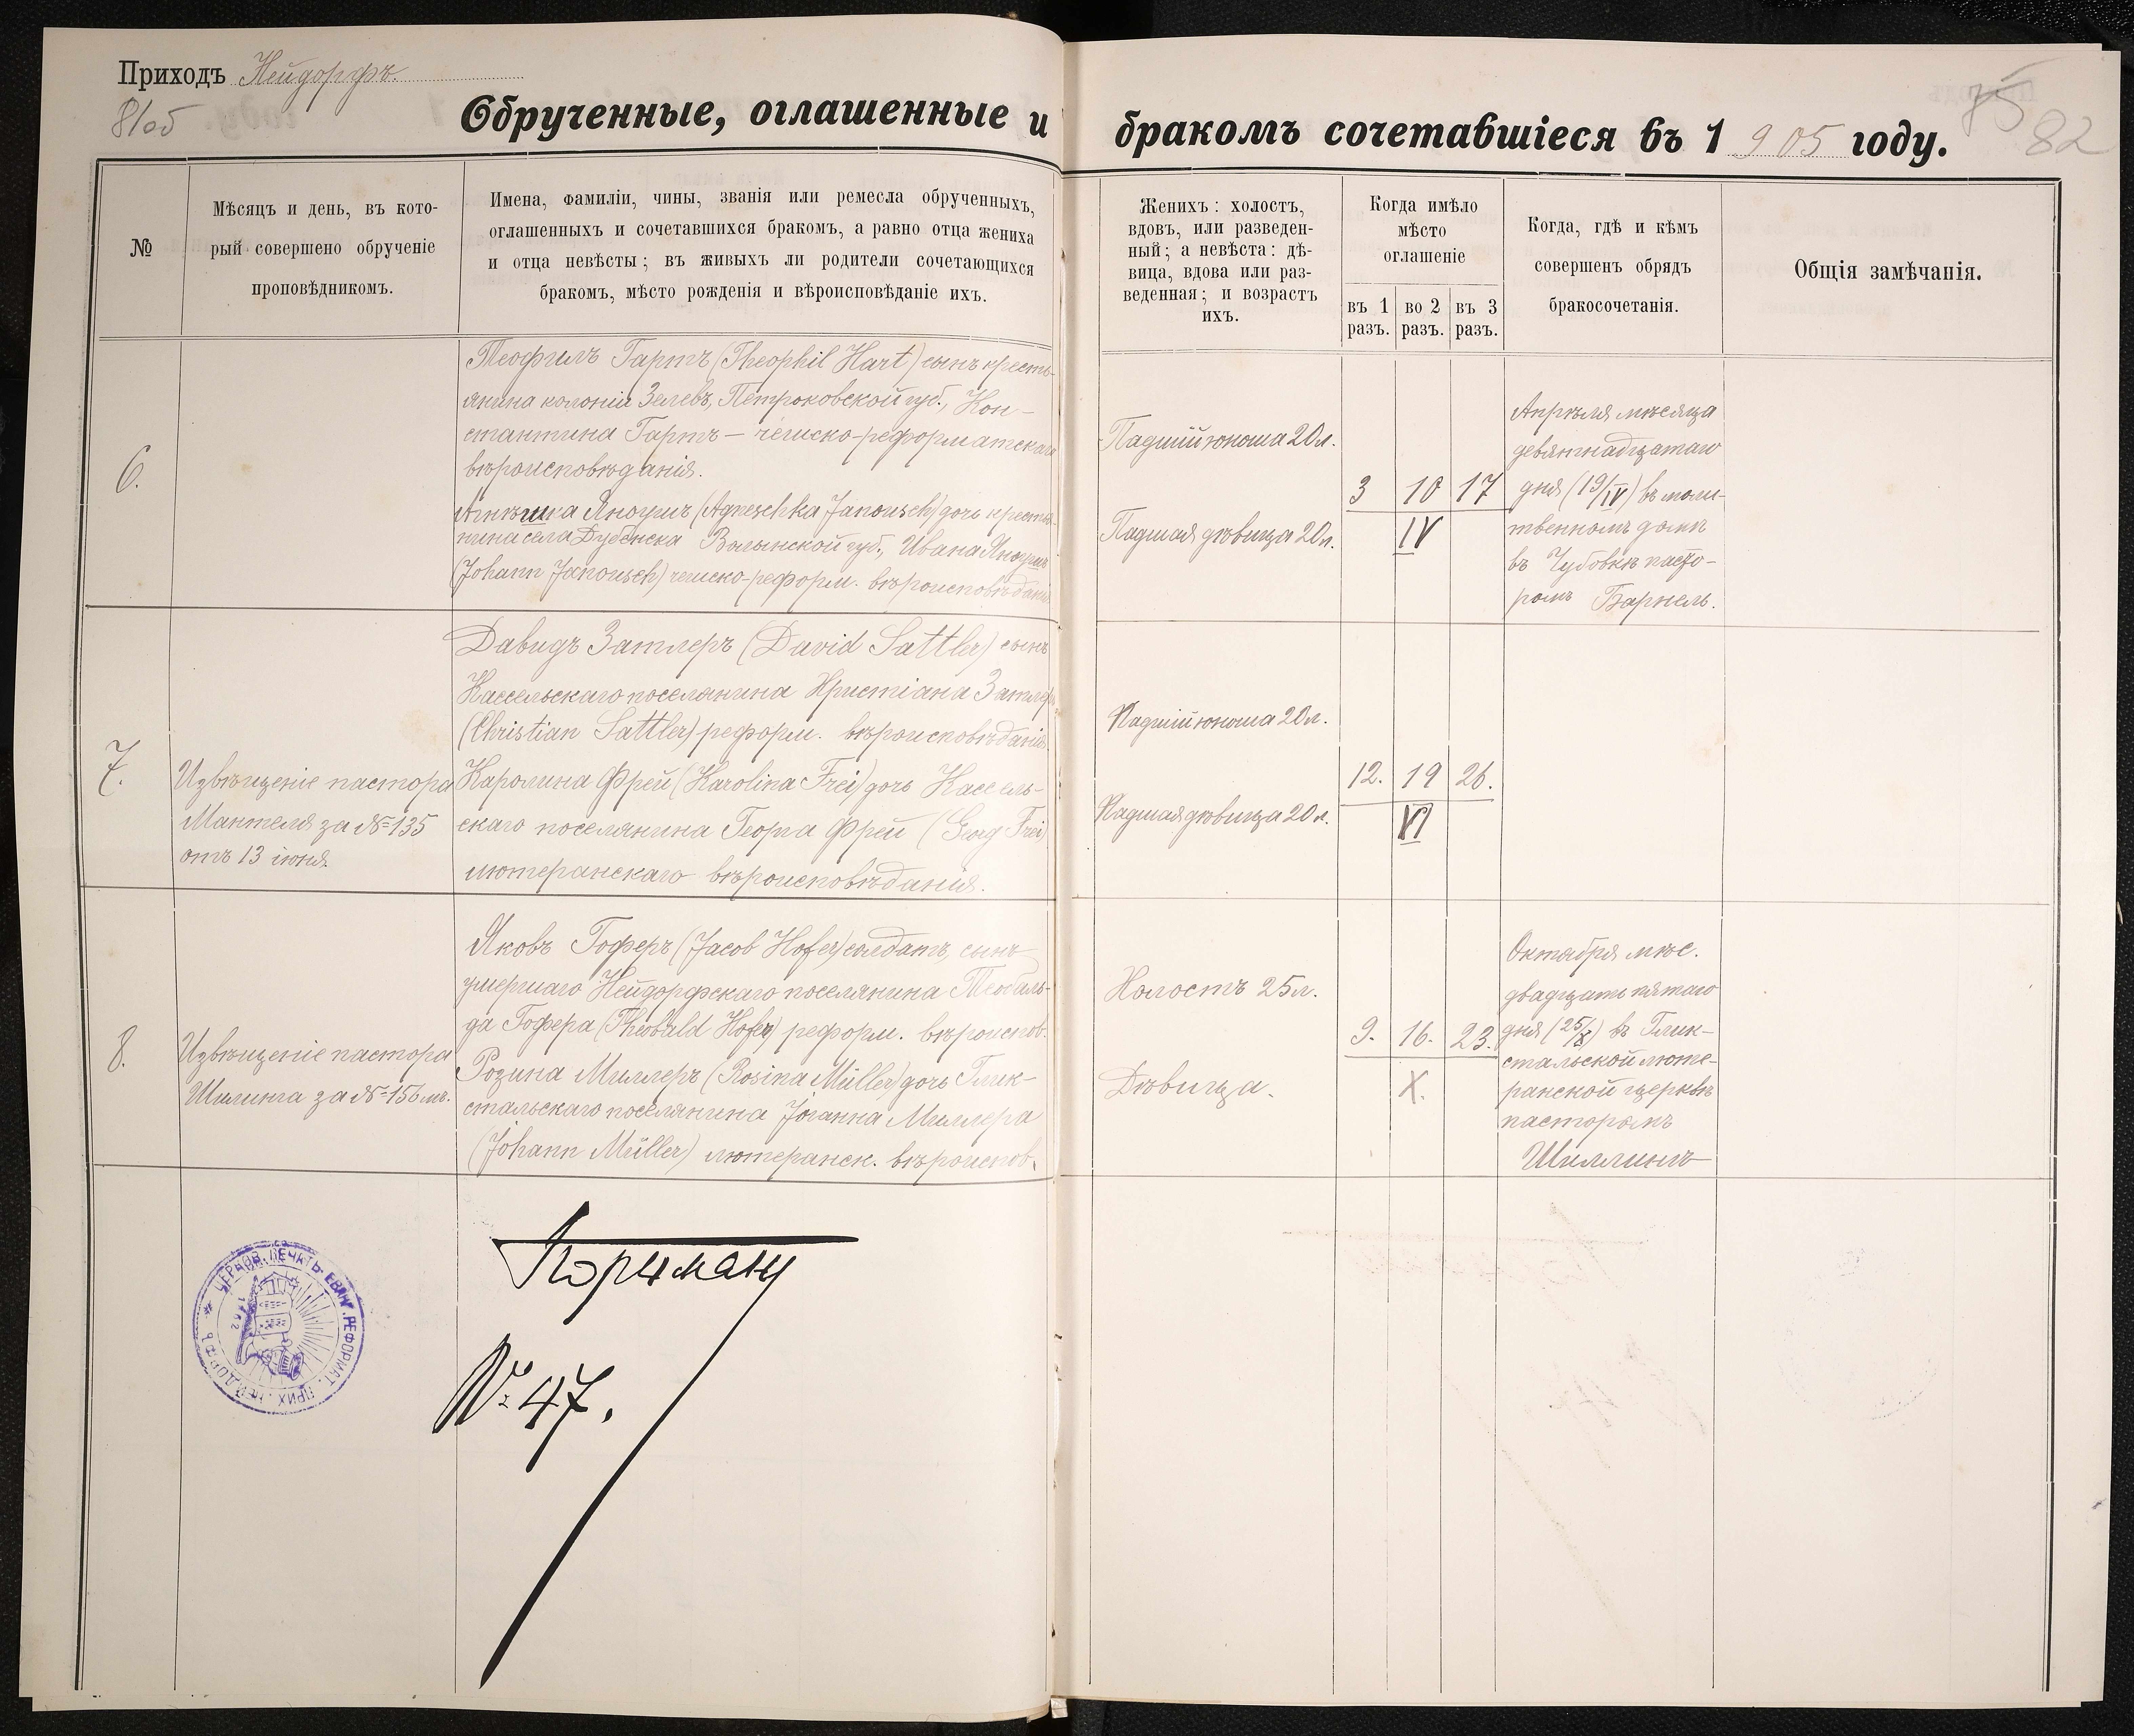 Приходъ Нейдорфъ.
81об
Обрученные, оглашенные и
№
Мѣсяцъ и день, въ кото-
рый совершено обрученіе
проповѣдникомъ.
Имена, фамиліи, чины, званія или ремесла обрученныхъ,
оглашенныхъ и сочетавшихся бракомъ, а равно отца жениха
и отца невѣсты; въ живыхъ ли родители сочетающихся
бракомъ, мѣсто рожденія и вѣроисповѣданіе ихъ.
6.
Теофилъ Гартъ (Theophil Hart) сынъ кресть-
янина колоніи Зелевъ, Петроковской губ., Кон-
стантина Гартъ — чешско-реформатскаго
вѣроисповѣданія.
Агнѣшка Яноушъ (Agneschka Janousch) дочь крестья-
нина села Дубенска Волынской губ., Ивана Яноушъ
(Johann Janousch) чешско-реформ. вѣроисповѣданія.
7.
Извѣщеніе пастора
Мантеля за № 135
отъ 13 іюня.
Давидъ Затлеръ (David Sattler) сынъ
Кассельскаго поселянина Христіана Затлеръ
(Christian Sattler) реформ. вѣроисповѣданія.
Каролина Фрей (Karolina Frei) дочь Кассель-
скаго поселянина Георга Фрей (Georg Frei)
лютеранскаго вѣроисповѣданія.
8.
Извѣщеніе пастора
Шилинга за № 156мъ.
Яковъ Гоферъ (Jacob Hofer) солдатъ, сынъ
умершаго Нейдорфскаго поселянина Теобаль-
да Гофера (Theobald Hofer) реформ. вѣроисповѣд.
Розина Миллеръ (Rosina Müller) дочь Глик-
стальскаго поселянина Іоанна Миллера
(Johann Müller) лютеранск. вѣроисповѣд.
ЦЕРКОВ. ПЕЧАТЬ ЕВАНГ. РЕФОРМАТ. ПРИХ. НЕЙДОРФЪ
№ 47.
бракомъ сочетавшіеся въ 1905 году.
75
82
Женихъ: холостъ,
вдовъ, или разведен-
ный; а невѣста: дѣ-
вица, вдова или раз-
веденная; и возрастъ
ихъ.
Когда имѣло
мѣсто
оглашеніе
въ 1 разъ.
во 2 разъ.
въ 3 разъ.
Когда, гдѣ и кѣмъ
совершенъ обрядъ
бракосочетанія.
Общія замѣчанія.
Падшій юноша 20 л.
Падшая дѣвица 20 л.
3 10 17
IV
Апрѣля мѣсяца
девятнадцатаго
дня (19/IV) въ моли-
твенномъ домѣ
въ Чубовкѣ пасто-
ромъ Барнель.
Падшій юноша 20 л.
Падшая дѣвица 20 л.
12. 19 26.
VI
Холостъ 25 л.
Дѣвица.
9. 16. 23.
X.
Октября мѣс.
двадцать пятаго
дня (25/X) въ Глик-
стальской люте-
ранской церквѣ
пасторомъ
Шиллингъ